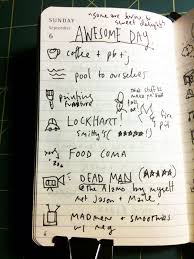 SUNDAY
September
6
"some are born to
sweet delight"
AWESOME DAY
coffee + pb + j
pool to ourselves
painting
furniture
LOCKHART!
Smitty's
FOOD COMA
DEAD MAN
@ the Alamo by myself
not Jason + Marie
MADMEN + smoothies
w/ meg